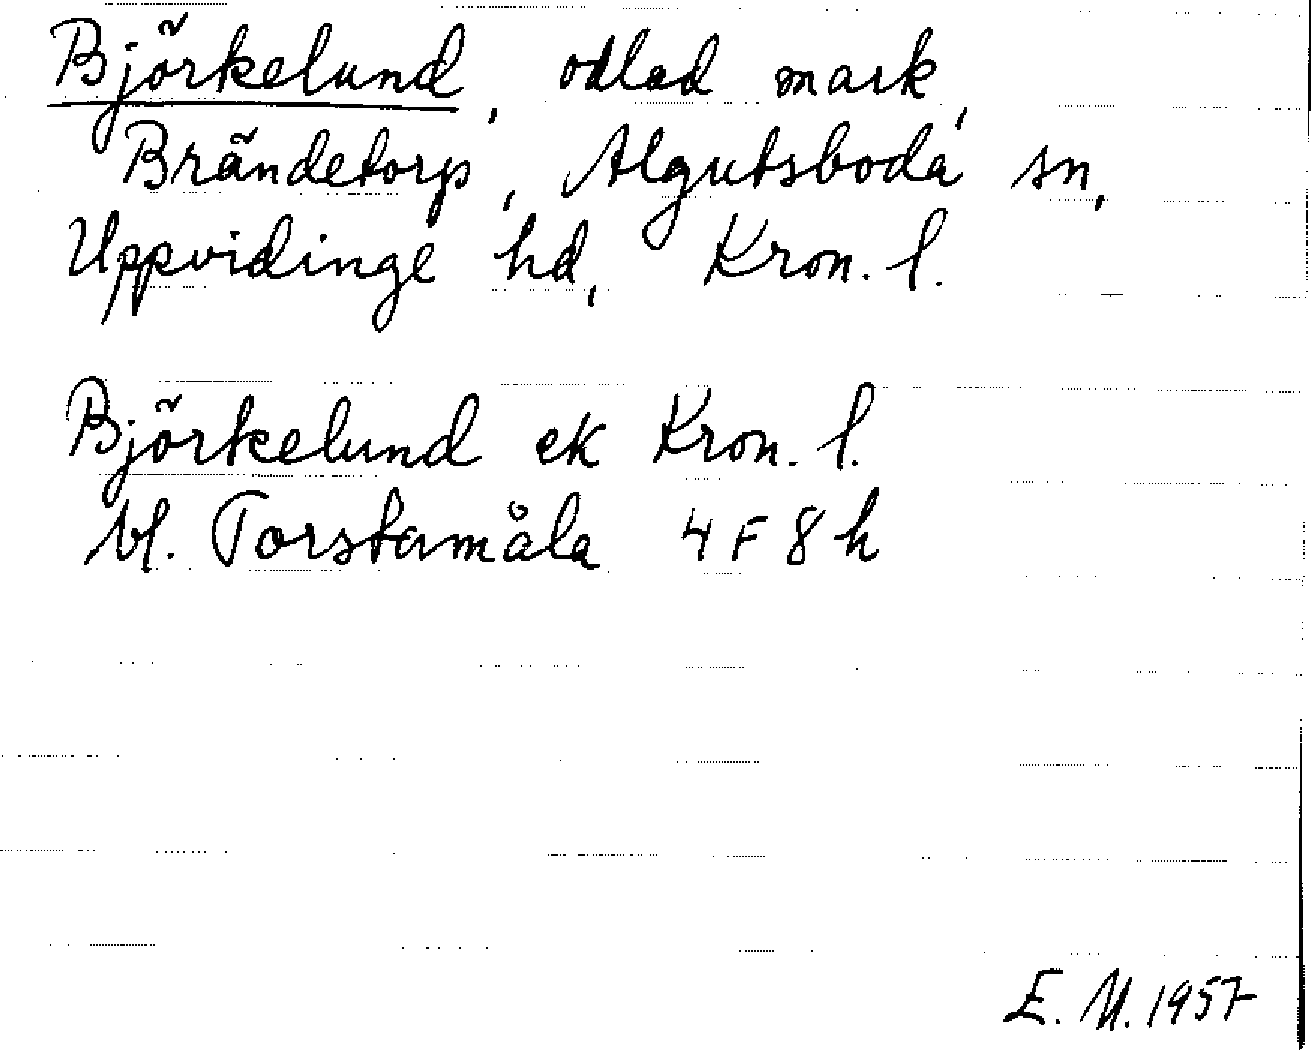 Björkelund, odlad mark,
Brändetorp, Algutsboda sn,
Uppvidinge hd, Kron. l.
Björkelund ek Kron. l.
bl. Torstamåla 4 F 8 h
E. M. 1957